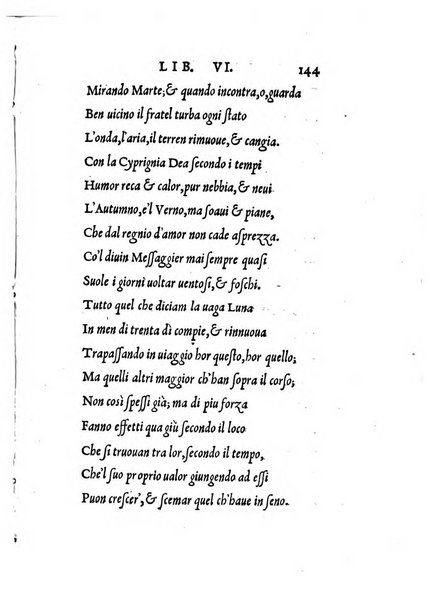 LIB. VI. 144
Mirando Marte; & quando incontra, o, guarda
Ben uicino il fratel turba ogni ſtato
L'onda, l'aria, il terren rimuoue, & cangia.
Con la Cyprignia Dea ſecondo i tempi
Humor reca & calor, pur nebbia, & neui
L'Autumno, e'l Verno, ma ſoaui & piane,
Che dal regnio d'amor non cade aſprezza.
Co'l diuin Meſſaggier mai ſempre quaſi
Suole i giorni uoltar uentoſi, & foſchi.
Tutto quel che diciam la uaga Luna
In men di trenta dì compie, & rinnuoua
Trapaſſando in uiaggio hor queſto, hor quello;
Ma quelli altri maggior ch'han ſopra il corſo;
Non così ſpeſſi già; ma di piu forza
Fanno effetti qua giù ſecondo il loco
Che ſi truouan tra lor, ſecondo il tempo,
Che'l ſuo proprio ualor giungendo ad eſſi
Puon creſcer', & ſcemar quel ch'haue in ſeno.